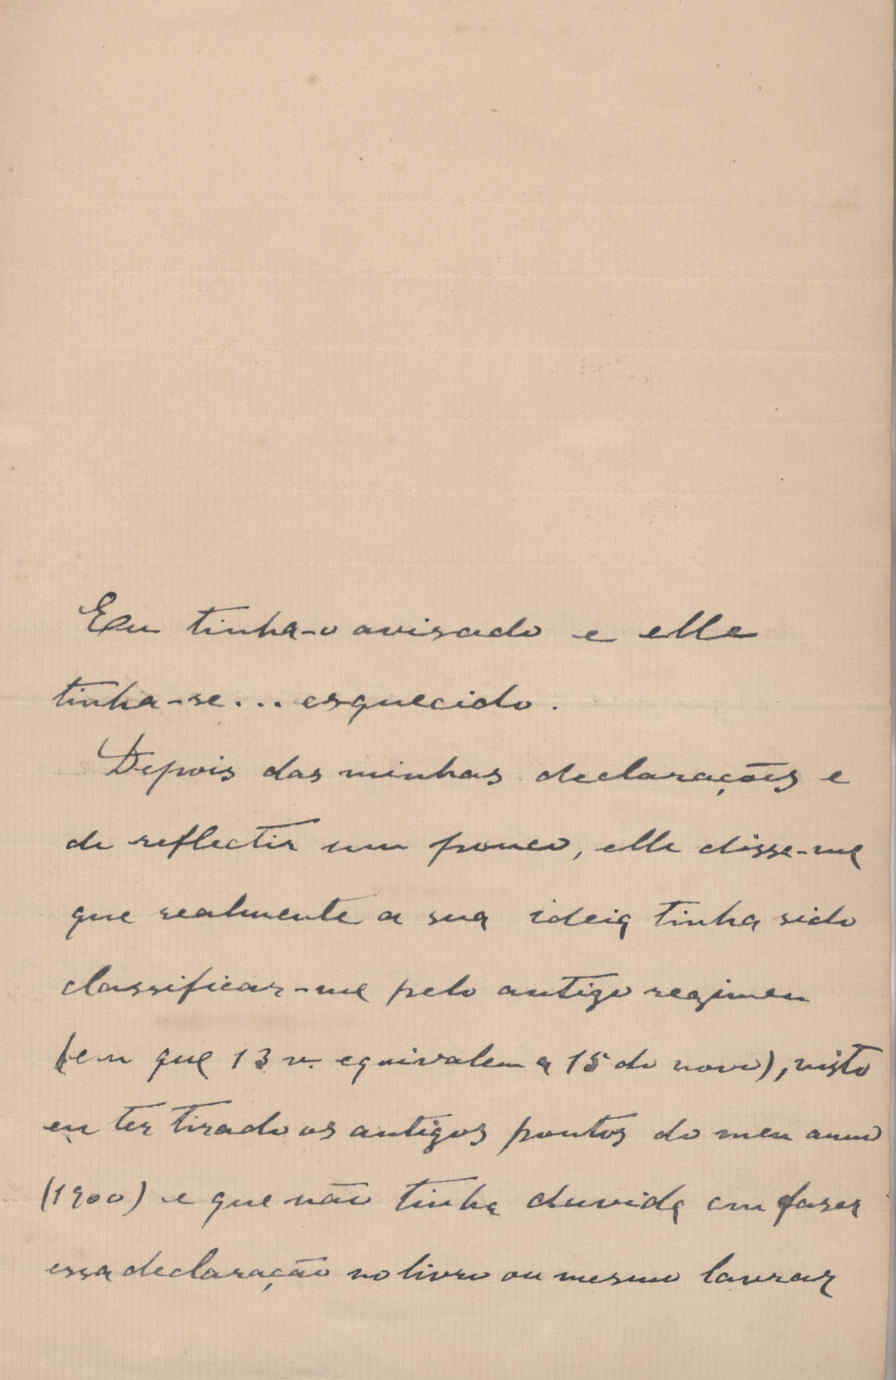 Eu tinha-o avisado e elle
tinha-se... esquecido.
Depois das minhas declarações e
de reflectir um pouco, elle disse-me
que realmente a sua ideia tinha sido
classificar-me pelo antigo regimen
(em que 13 v. equivalem a 15 do novo), visto
eu ter tirado os antigos pontos do meu anno
(1900) e que não tinha duvida em fazer
essa declaração no livro ou mesmo lavrar